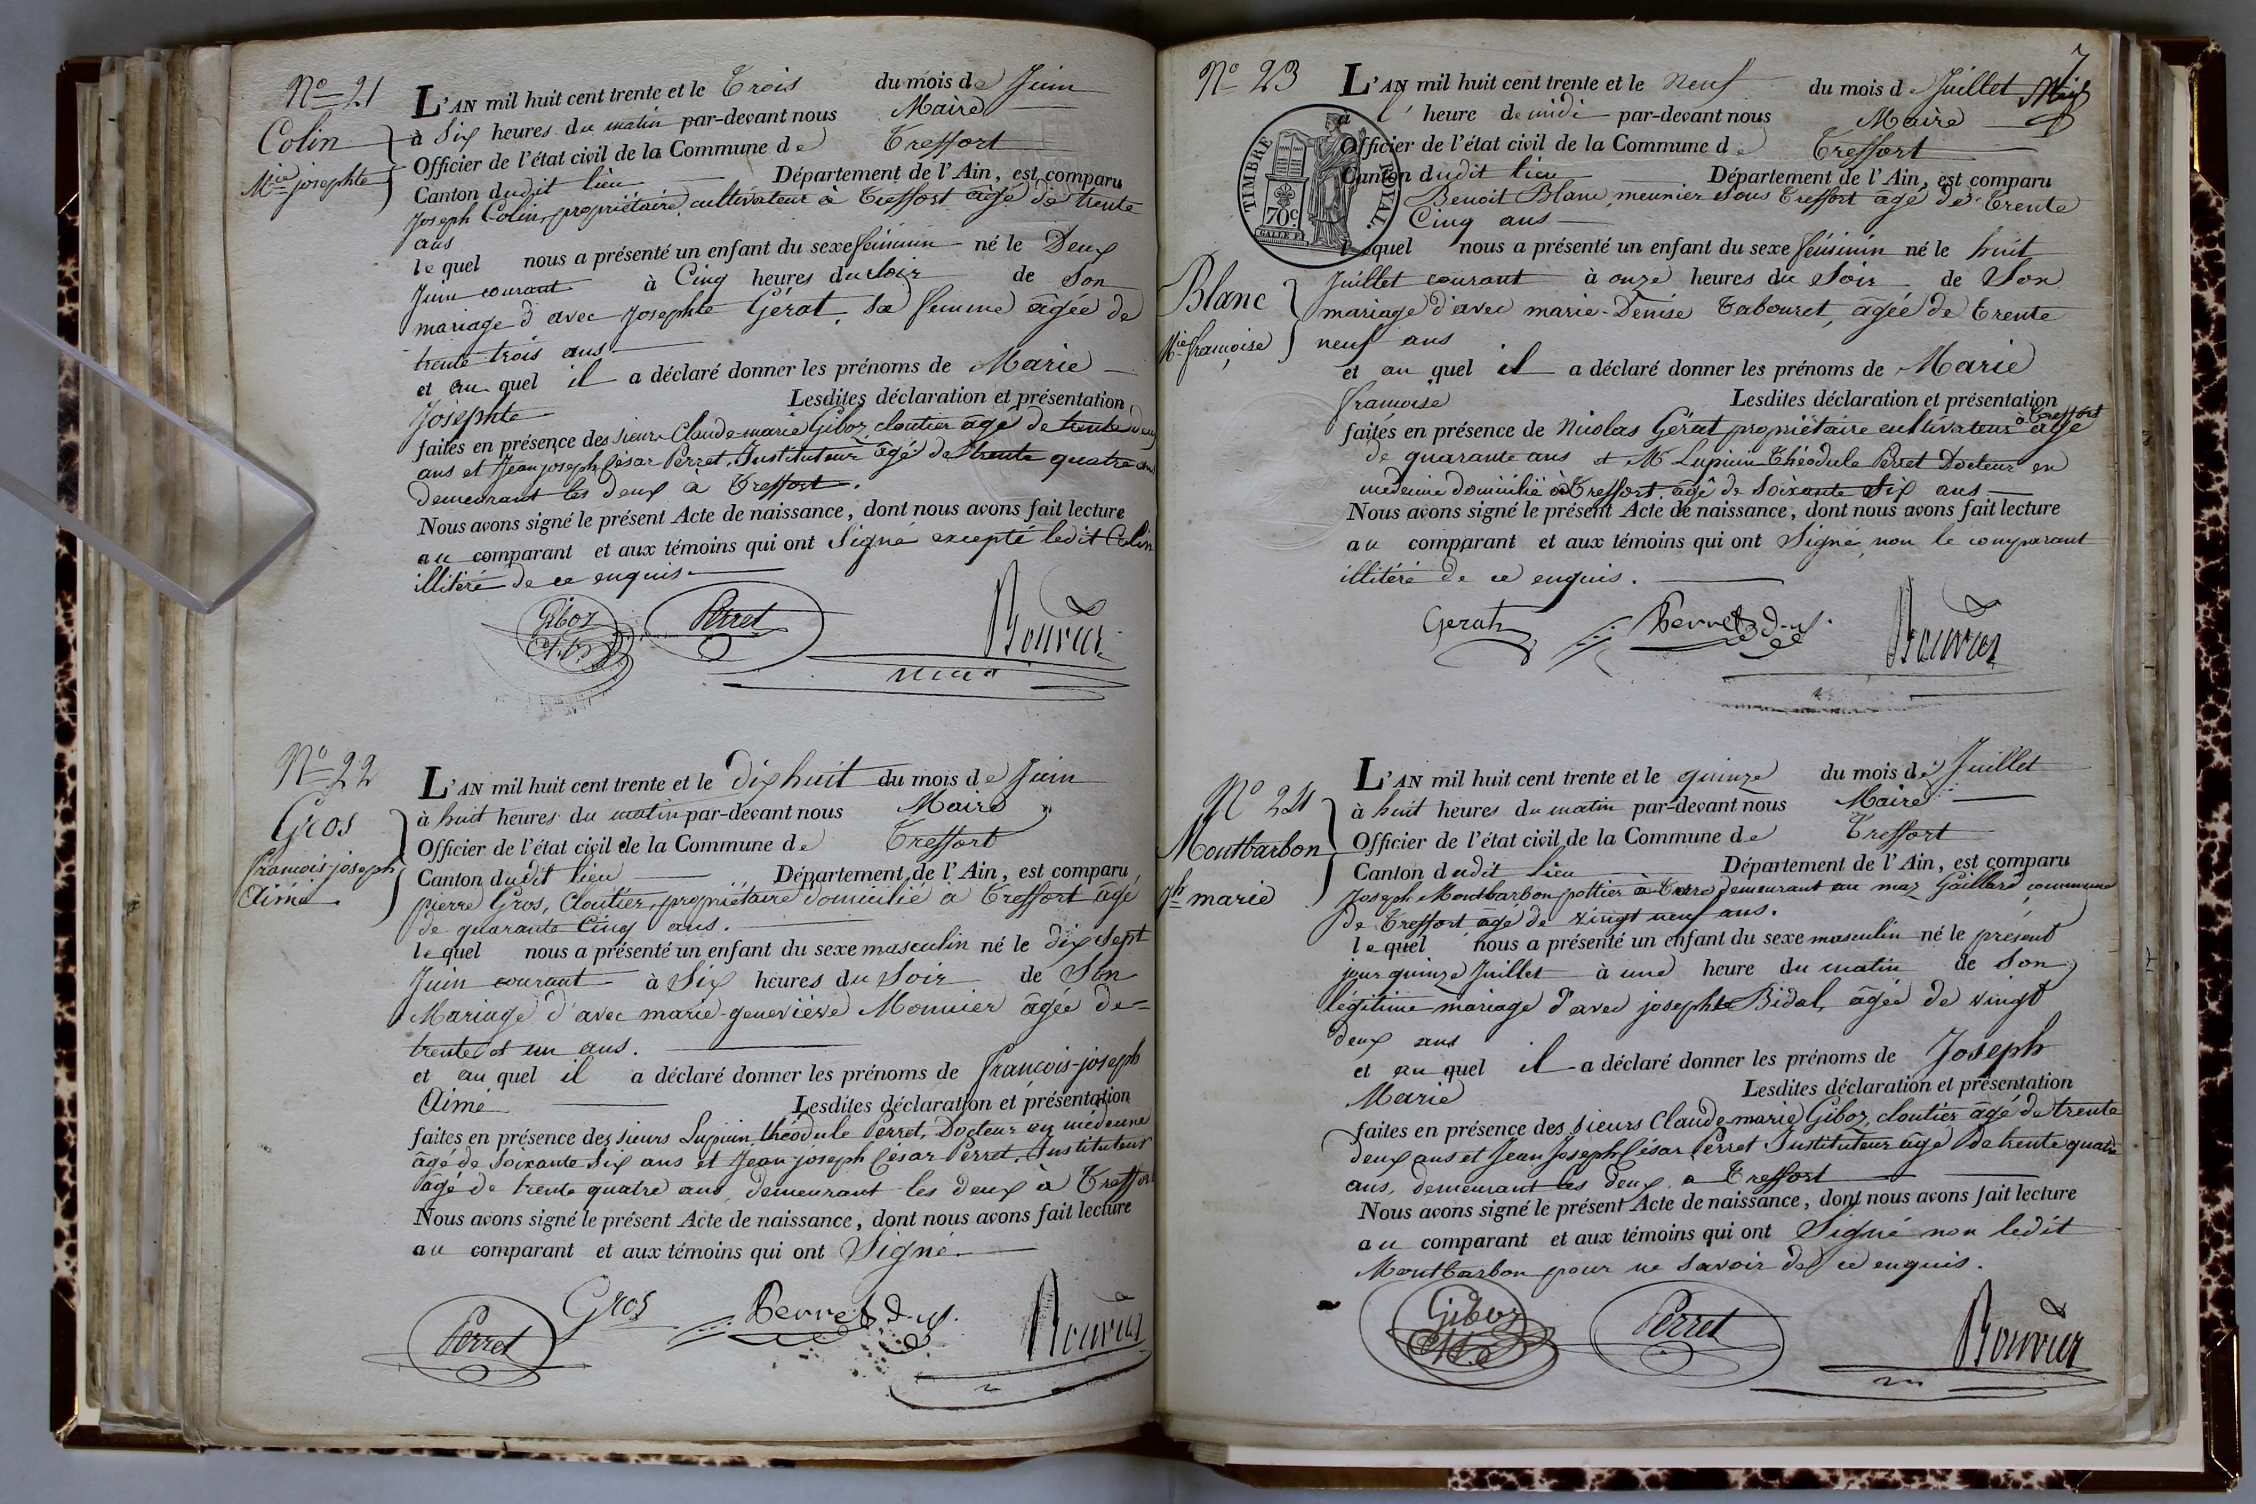 N.º 21
Colin
M.ie josephte
L'AN mil huit cent trente et le Trois du mois de Juin
à Six heures du matin par-devant nous Maire
Officier de l'état civil de la Commune de Treffort
Canton dudit lieu Département de l'Ain, est comparu
Joseph Colin, propriétaire cultivateur à Treffort âgé de trente
ans
lequel nous a présenté un enfant du sexe féminin né le Deux
Juin courant à Cinq heures du Soir de Son
mariage d'avec Josephte Gérat, sa femme âgée de
trente trois ans
et au quel il a déclaré donner les prénoms de Marie
Josephte Lesdites déclaration et présentation
faites en présence des sieurs Claude marie Giboz cloutier âgé de trente deux
ans et Jean joseph César Perret, Instituteur âgé de trente quatre ans
demeurant les deux à Treffort.
Nous avons signé le présent Acte de naissance, dont nous avons fait lecture
au comparant et aux témoins qui ont Signé excepté ledit Colin
illitéré de ce enquis.
Giboz
Perret
Bouvier
N.º 22
Gros
françois-joseph
Aimé
L'AN mil huit cent trente et le dix huit du mois de Juin
à huit heures du matin par-devant nous Maire
Officier de l'état civil de la Commune de Treffort
Canton dudit lieu Département de l'Ain, est comparu
pierre Gros, Cloutier, propriétaire domicilié à Treffort âgé
de quarante Cinq ans.
lequel nous a présenté un enfant du sexe masculin né le dix Sept
Juin courant à Six heures du Soir de Son
Mariage d'avec marie-geneviève Monnier âgée de
trente et un ans.
et au quel il a déclaré donner les prénoms de françois-joseph
Aimé Lesdites déclaration et présentation
faites en présence des sieurs Lupicin théodule Perret, Docteur en médecine
âgé de Soixante Six ans et Jean joseph César Perret, Instituteur
âgé de trente quatre ans, demeurant les deux à Treffort
Nous avons signé le présent Acte de naissance, dont nous avons fait lecture
au comparant et aux témoins qui ont Signé.
Perret
Gros
Perret d.m.
Bouvier
7
N.º 23
L'AN mil huit cent trente et le Neuf du mois de Juillet
à l'heure de midi par-devant nous Maire
Officier de l'état civil de la Commune de Treffort
Canton dudit lieu Département de l'Ain, est comparu
Benoit Blanc, meunier sous Treffort âgé de trente
Cinq ans
TIMBRE ROYAL.
70c
lequel nous a présenté un enfant du sexe féminin né le huit
Blanc
M.ie françoise
Juillet courant à onze heures du Soir de Son
mariage d'avec marie-Denise Tabouret, âgée de trente
neuf ans
et au quel il a déclaré donner les prénoms de Marie
françoise Lesdites déclaration et présentation
faites en présence de Nicolas Gérat propriétaire cultivateur à Treffort âgé
de quarante ans et M.r Lupicin Théodule Perret Docteur en
médecine domicilié à Treffort, âgé de Soixante Six ans
Nous avons signé le présent Acte de naissance, dont nous avons fait lecture
au comparant et aux témoins qui ont Signé, non le comparant
illitéré de ce enquis.
Gerat
Perret d.m.
Bouvier
N.º 24
Montbarbon
J.ph marie
L'AN mil huit cent trente et le quinze du mois de Juillet
à huit heures du matin par-devant nous Maire
Officier de l'état civil de la Commune de Treffort
Canton dudit lieu Département de l'Ain, est comparu
Joseph Montbarbon pottier à terre demeurant au maz Gaillard, commune
de Treffort âgé de vingt neuf ans.
lequel nous a présenté un enfant du sexe masculin né le présent
jour quinze Juillet à une heure du matin de Son
légitime mariage d'avec josephte Bidal, âgée de vingt
deux ans
et au quel il a déclaré donner les prénoms de Joseph
Marie Lesdites déclaration et présentation
faites en présence des sieurs Claude-marie Giboz, cloutier âgé de trente
deux ans et Jean Joseph César Perret Instituteur âgé de trente quatre
ans, demeurant les deux à Treffort
Nous avons signé le présent Acte de naissance, dont nous avons fait lecture
au comparant et aux témoins qui ont Signé non ledit
Montbarbon pour ne savoir de ce enquis.
Giboz
Perret
Bouvier